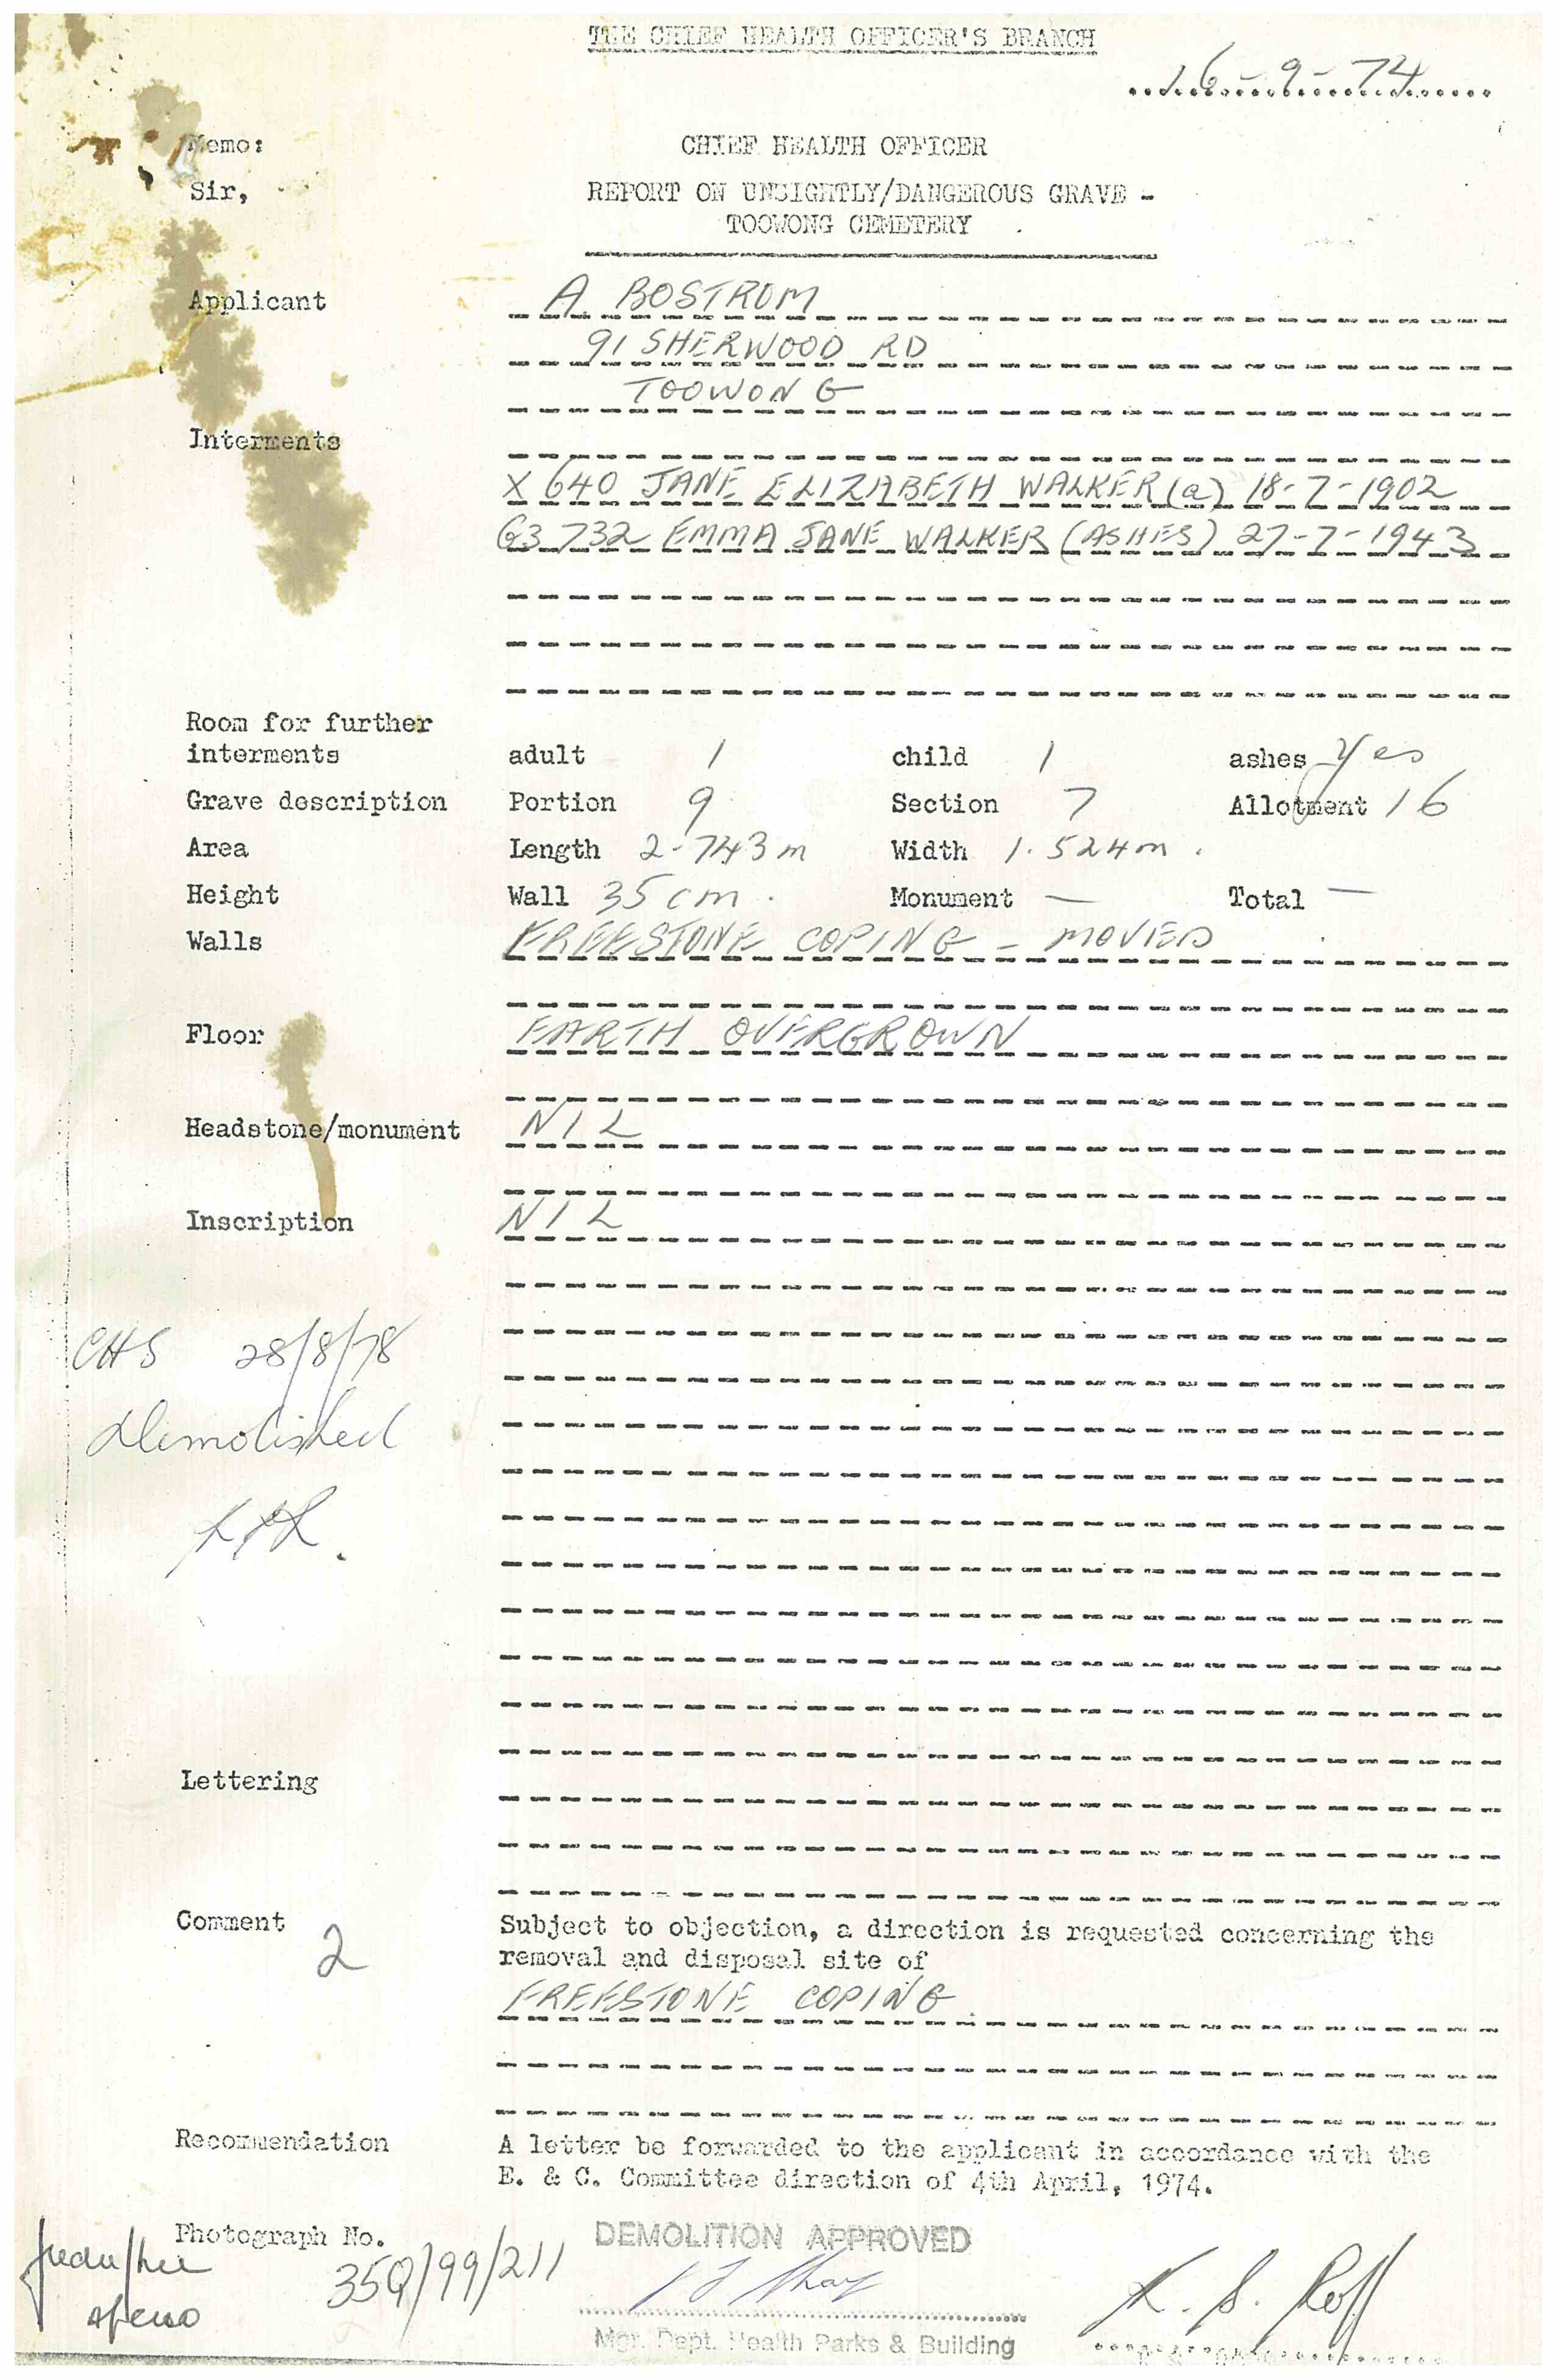 THE CHIEF HEALTH OFFICER'S BRANCH
16-9-74
Memo: CHIEF HEALTH OFFICER
Sir, REPORT ON UNSIGHTLY/DANGEROUS GRAVE -
TOOWONG CEMETERY
Applicant A BOSTROM
91 SHERWOOD RD
TOOWONG
Interments
X 640 JANE ELIZABETH WALKER (a) 18-7-1902
G3732 EMMA JANE WALKER (ASHES) 27-7-1943
Room for further
interments adult 1 child 1 ashes yes
Grave description Portion 9 Section 7 Allotment 16
Area Length 2.743m Width 1.524m.
Height Wall 35cm. Monument — Total —
Walls FREESTONE COPING - MOVED
Floor EARTH OVERGROWN
Headstone/monument NIL
Inscription NIL
CHS 28/8/78
Demolished
Lettering
Comment 2 Subject to objection, a direction is requested concerning the
removal and disposal site of
FREESTONE COPING.
Recommendation A letter be forwarded to the applicant in accordance with the
E. & C. Committee direction of 4th April, 1974.
Photograph No. DEMOLITION APPROVED
35Q/99/211
K. S. Roff
Mgr. Dept. Health Parks & Building